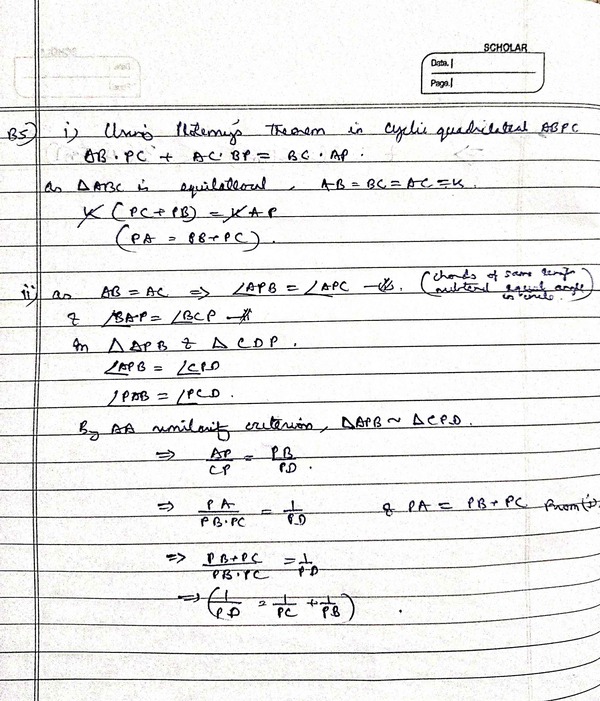 SCHOLAR
Date.
Page.
B5) i) Using Ptolemy's Theorem in cyclic quadrilateral ABPC
AB·PC + AC·BP = BC·AP.
as ΔABC is equilateral, AB = BC = AC = K.
K (PC + PB) = K AP
(PA = PB + PC).
ii) as AB = AC ⇒ ∠APB = ∠APC (chords of same length
subtend equal angle
in circle.)
& ∠BAP = ∠BCP
In ΔAPB & ΔCDP.
∠APB = ∠CPD
∠PAB = ∠PCD.
By AA similarity criterion, ΔAPB ~ ΔCPD.
⇒ AP/CP = PB/PD.
⇒ PA/PB·PC = 1/PD & PA = PB + PC from (i).
⇒ PB+PC/PB·PC = 1/PD
⇒ (1/PD = 1/PC + 1/PB).